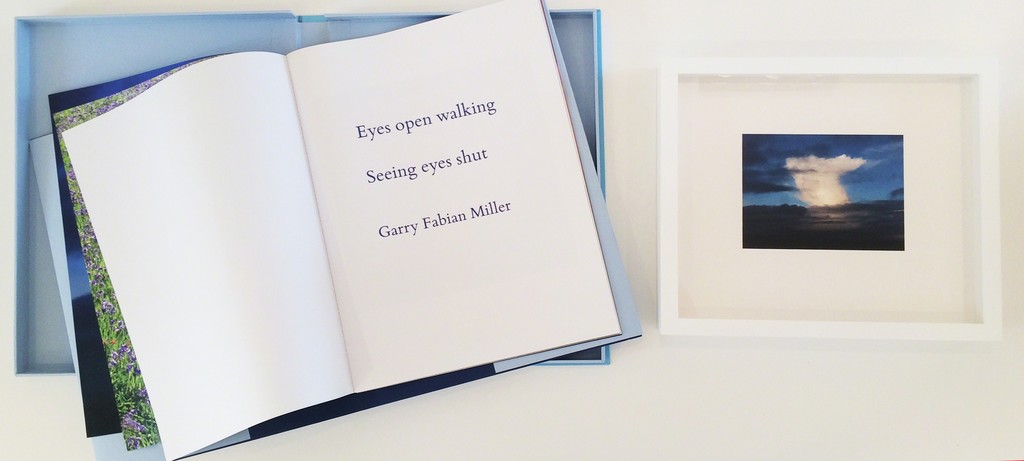 Eyes open walking
Seeing eyes shut
Garry Fabian Miller